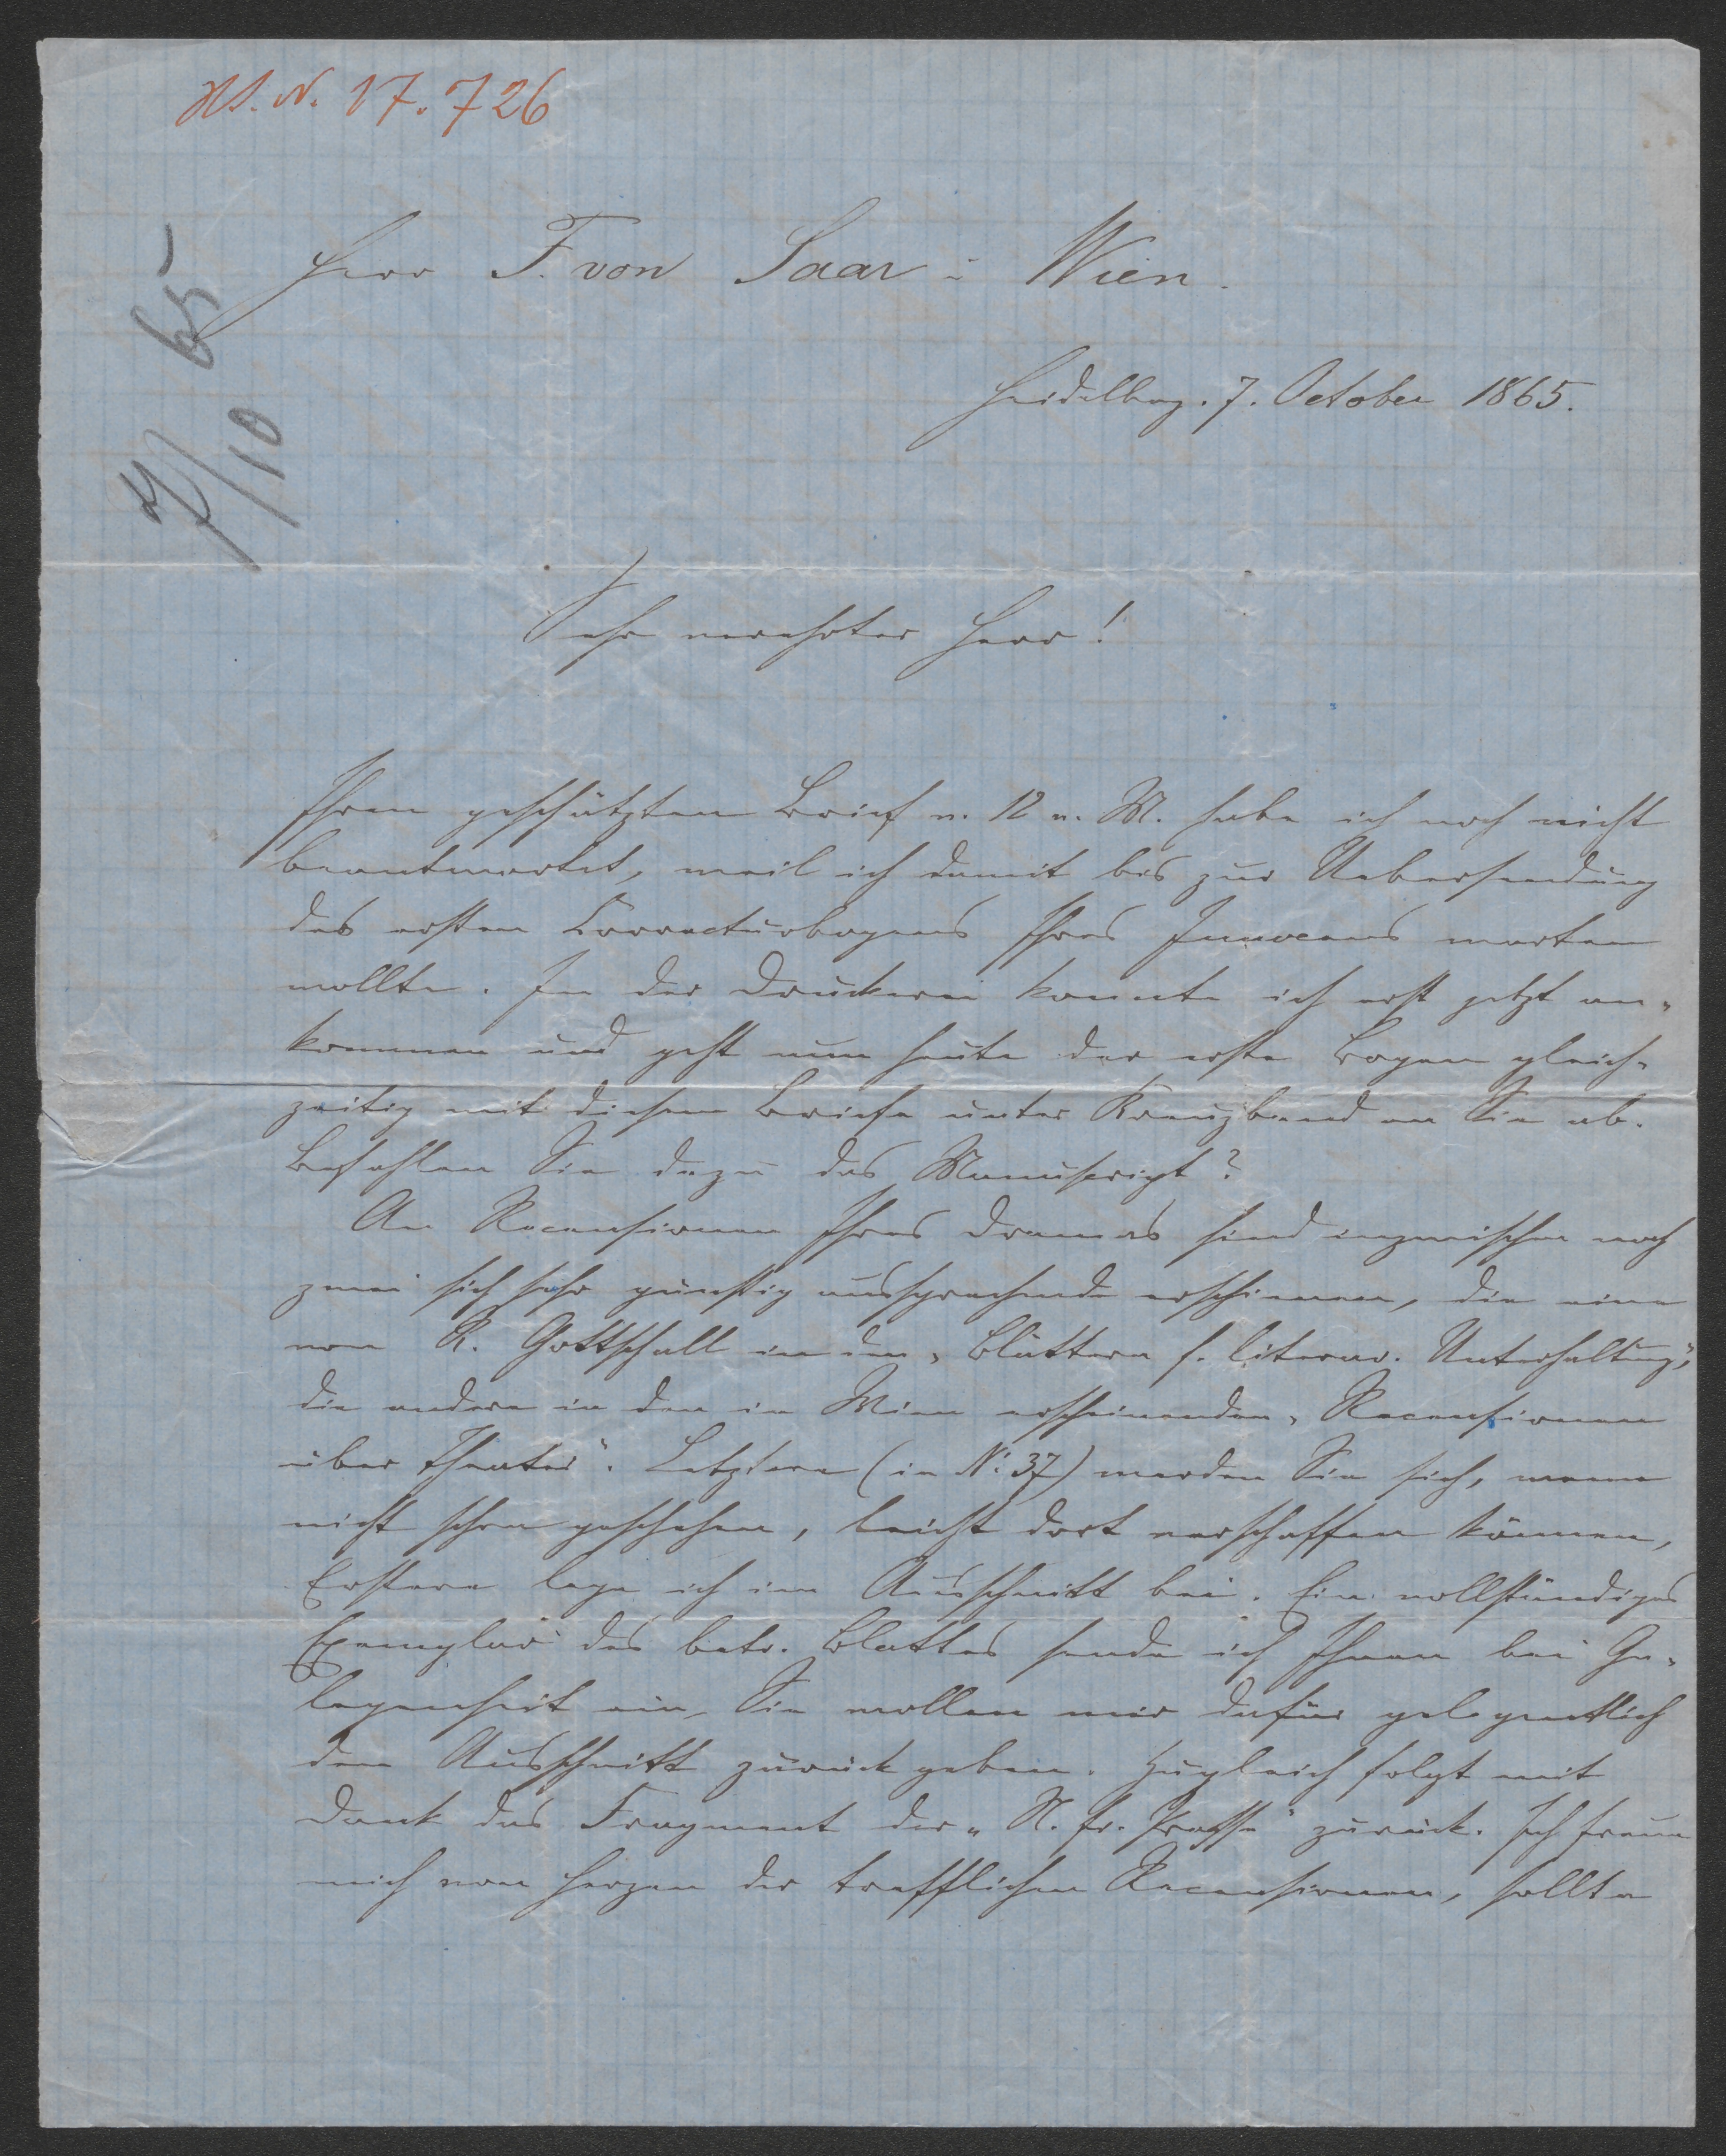 HS. N. 17.726
7/10 65
Herr F. von Saar i Wien.
Heidelberg. 7. October 1865.
Sehr verehrter Herr!
Ihren geschätzten Brief v. 12 v. M. habe ich noch nicht
beantwortet, weil ich damit bis zur Uebersendung
des ersten Correcturbogens Ihres Innocens warten
wollte. In der Druckerei konnte ich erst jetzt an-
kommen und geht nun heute der erste Bogen gleich-
zeitig mit diesem Briefe unter Kreuzband an Sie ab.
Befehlen Sie dazu das Manuscript?
An Recensionen Ihres Dramas sind inzwischen noch
zwei sich sehr günstig aussprechende erschienen, die eine
von R. Gottschall in den „Blättern f. literar. Unterhaltung",
die andere in den in Wien erscheinenden „Recensionen
über Theater". Letztere (in No: 37) werden Sie sich, wenn
nicht schon geschehen, leicht dort verschaffen können,
Erstere lege ich im Ausschnitt bei. Ein vollständiges
Exemplar des betr. Blattes sende ich Ihnen bei Ge-
legenheit ein, Sie wollen mir dafür gelegentlich
den Ausschnitt zurück geben. Zugleich folgt mit
Dank das Fragment der „N. fr. Presse" zurück. Ich freue
mich von Herzen der trefflichen Recensionen, sollte